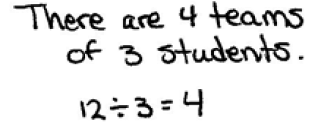 There are 4 teams
of 3 students.
12÷3=4